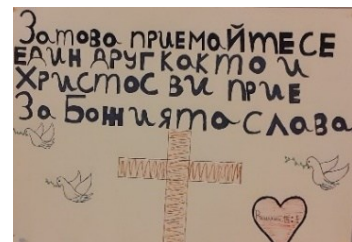 Затова приемайте се
един друг както и
Христос ви прие
За Божията слава